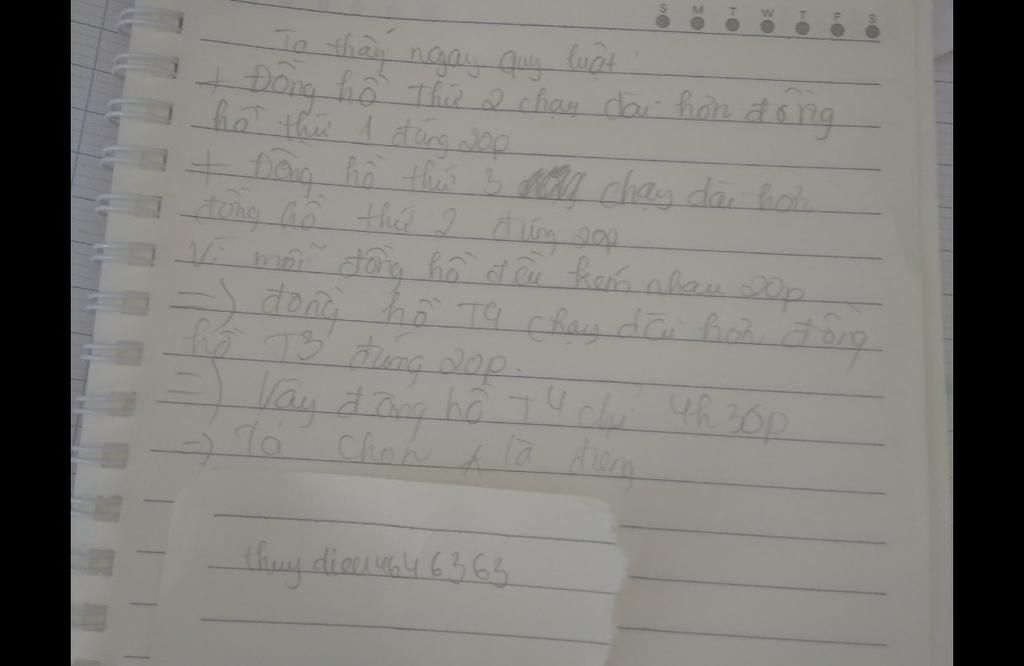 S M T W T F S
Ta thấy ngay quy luật:
+ Đồng hồ thứ 2 chạy dài hơn đồng
hồ thứ 1 đúng 20p
+ Đồng hồ thứ 3 chạy dài hơn
đồng hồ thứ 2 đúng 20p
Vì mỗi đồng hồ đều kém nhau 20p
=> đồng hồ T4 chạy dài hơn đồng
hồ T3 đúng 20p.
=> Vậy đồng hồ T4 chỉ 4h30p
=> Ta chọn A là
thuy dieu4646363